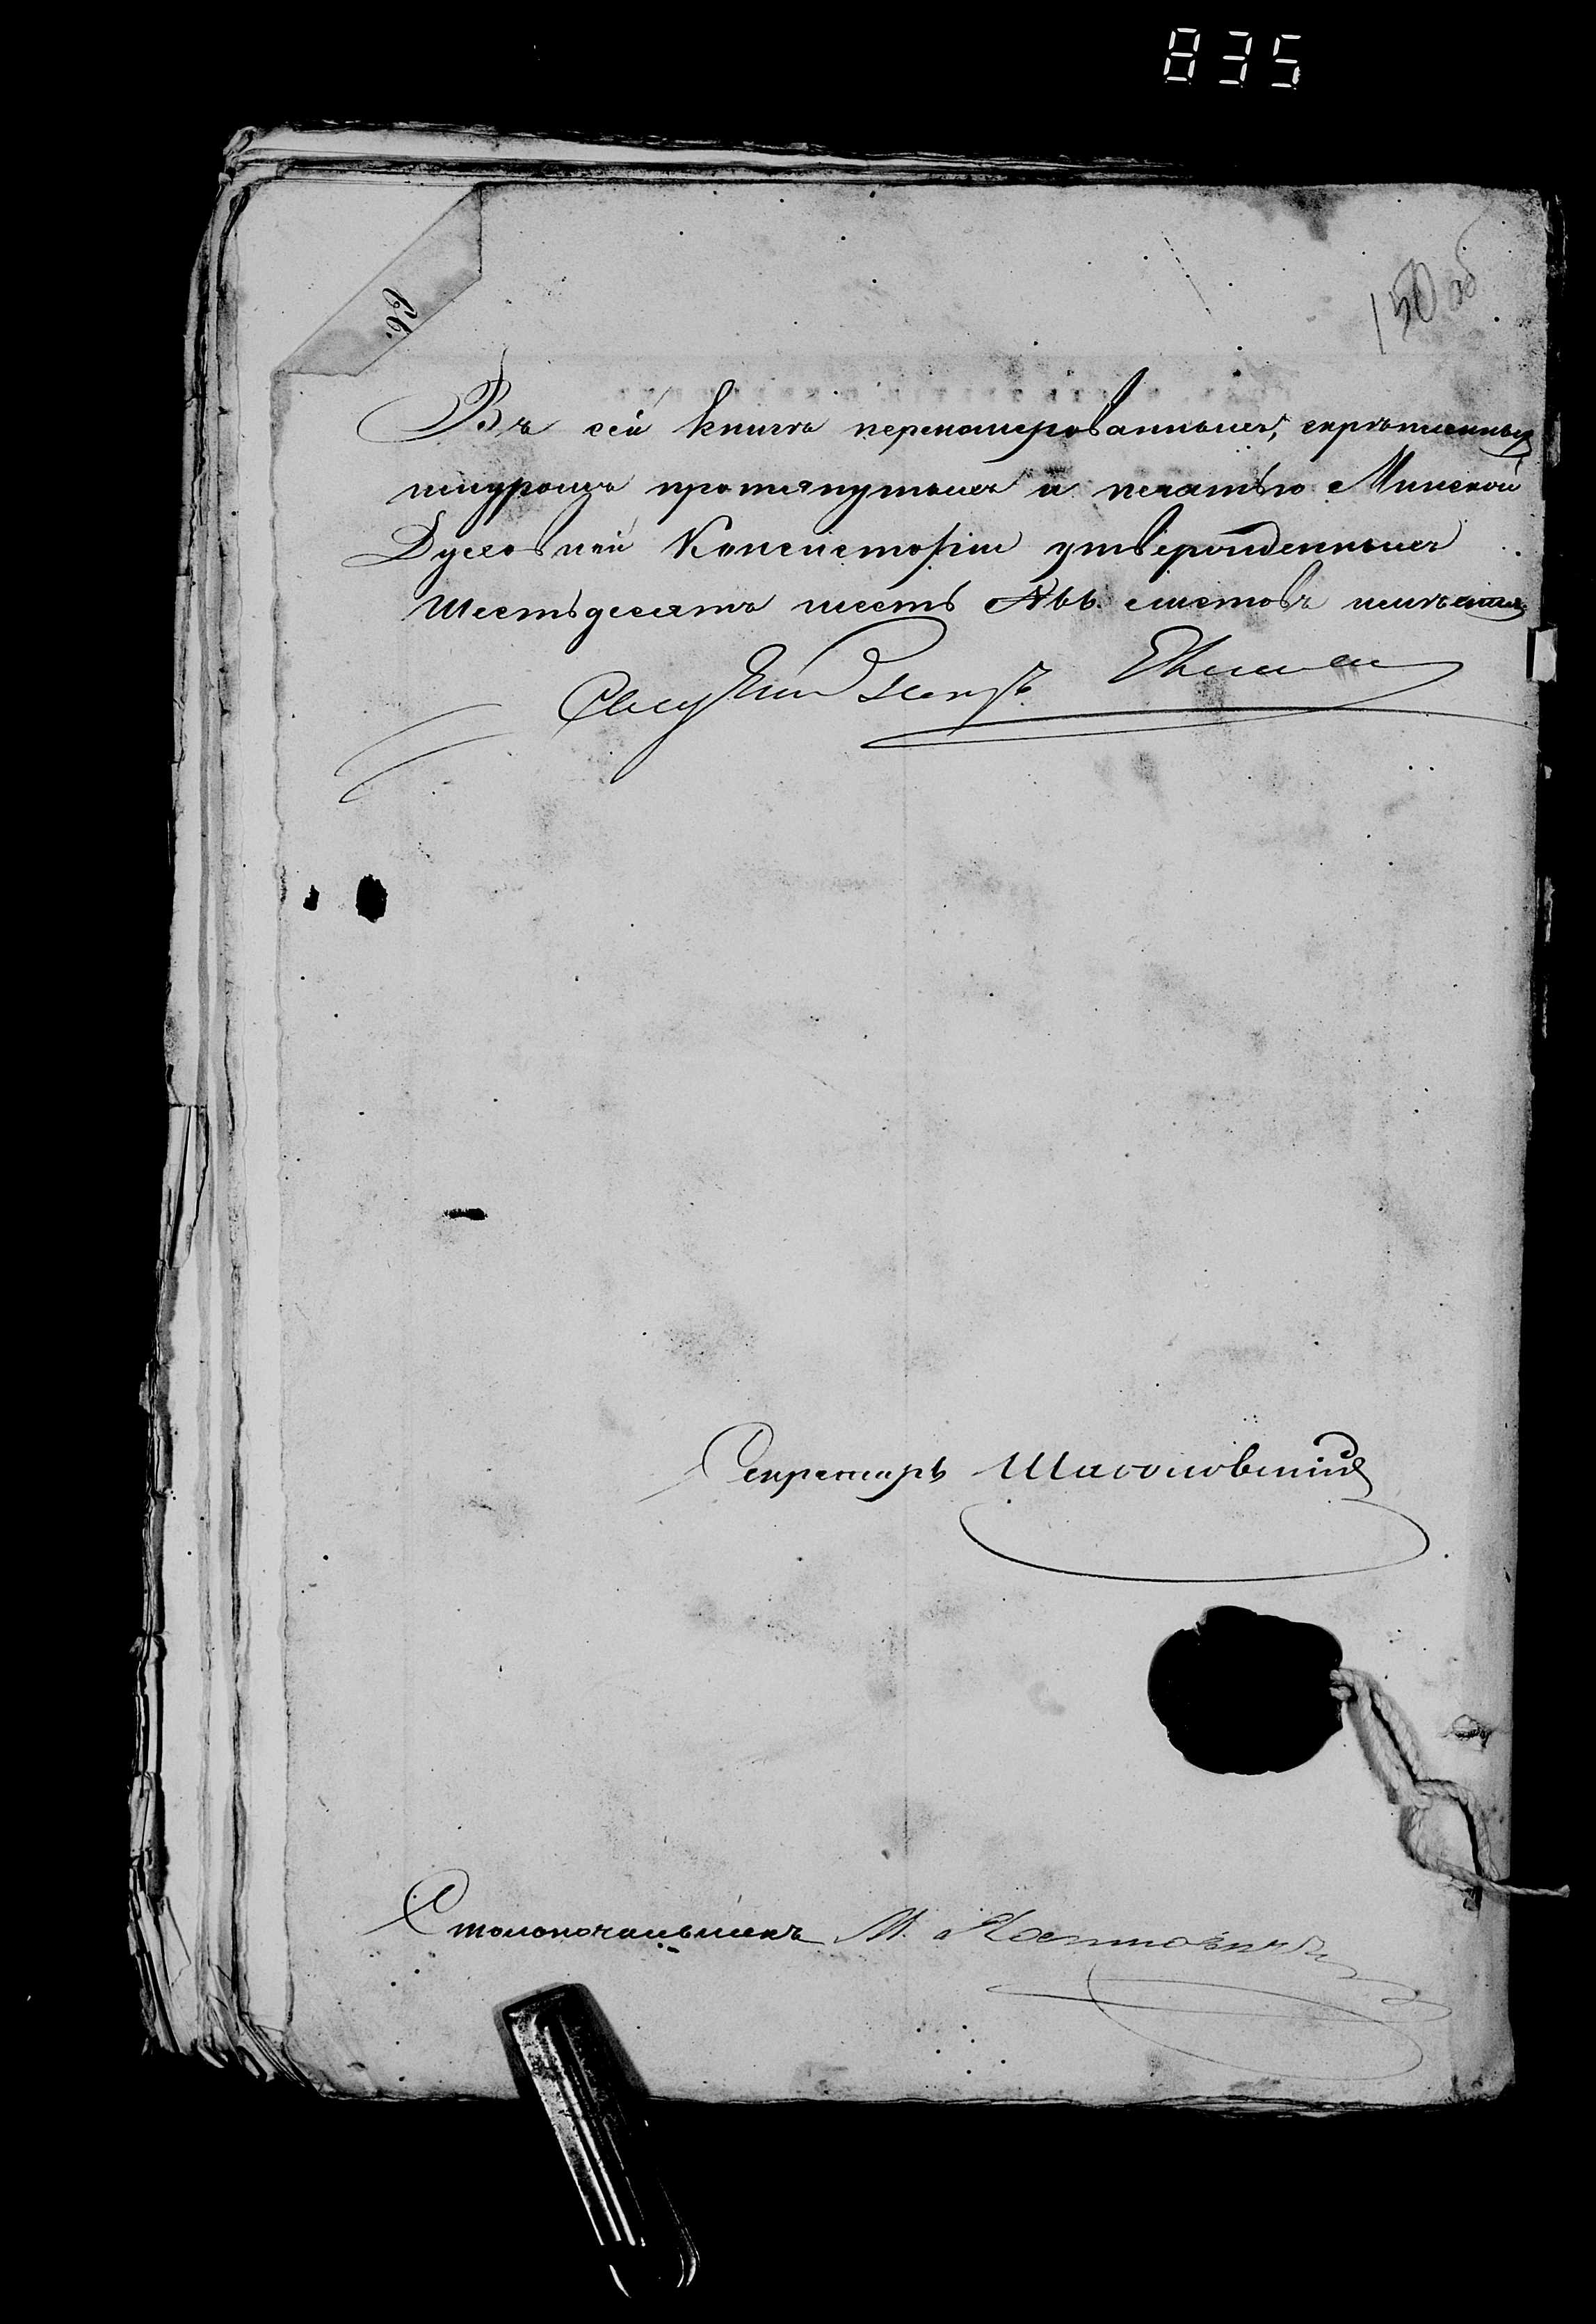 835
150 об
66.
Въ сей книгѣ перенумерованныхъ, скрѣпленныхъ
шнуромъ протянутыхъ и печатью Минской
Духовной Консисторіи утвержденныхъ
Шестьдесятъ шесть № 66. листовъ имѣется
Секретарь
Столоначальникъ М.